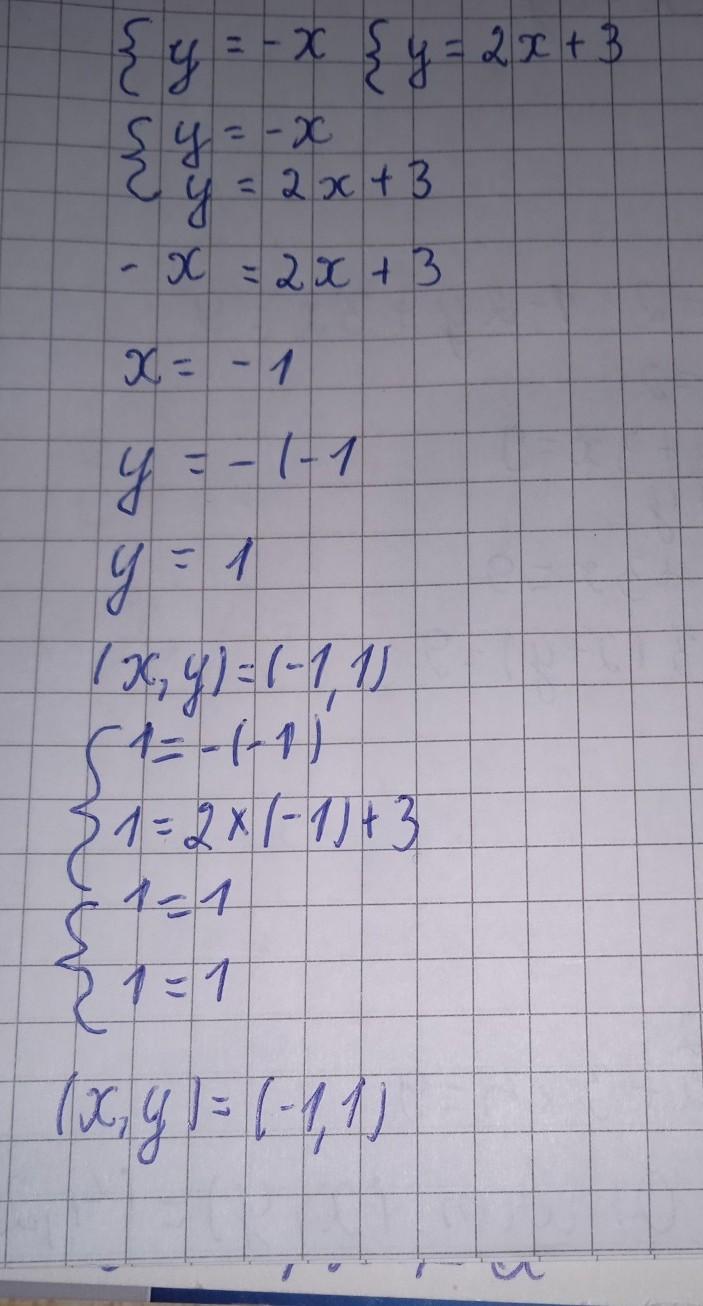 { y = -x { y = 2x + 3
{ y = -x
y = 2x + 3
- x = 2x + 3
x = - 1
y = - (-1
y = 1
(x, y) = (-1, 1)
{ 1 = -(-1)
1 = 2 × (-1) + 3
{ 1 = 1
1 = 1
(x, y) = (-1, 1)